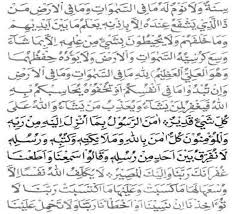 سِنَةٌ وَلَا نَوْمٌ لَهُ مَا فِي السَّمٰوَاتِ وَمَا فِي الْاَرْضِ مَنْ
ذَا الَّذِي يَشْفَعُ عِنْدَهُ اِلَّا بِاِذْنِهِ يَعْلَمُ مَا بَيْنَ اَيْدِيهِمْ
وَمَا خَلْفَهُمْ وَلَا يُحِيطُونَ بِشَيْءٍ مِنْ عِلْمِهِ اِلَّا بِمَا شَاءَ
وَسِعَ كُرْسِيُّهُ السَّمٰوَاتِ وَالْاَرْضَ وَلَا يَؤُدُهُ حِفْظُهُمَا
وَهُوَ الْعَلِيُّ الْعَظِيمُ لِلّٰهِ مَا فِي السَّمٰوَاتِ وَمَا فِي الْاَرْضِ
وَاِنْ تُبْدُوا مَا فِي اَنْفُسِكُمْ اَوْ تُخْفُوهُ يُحَاسِبْكُمْ بِهِ
اللّٰهُ فَيَغْفِرُ لِمَنْ يَشَاءُ وَيُعَذِّبُ مَنْ يَشَاءُ وَاللّٰهُ عَلٰى
كُلِّ شَيْءٍ قَدِيرٌ اٰمَنَ الرَّسُولُ بِمَا اُنْزِلَ اِلَيْهِ مِنْ رَبِّهِ
وَالْمُؤْمِنُونَ كُلٌّ اٰمَنَ بِاللّٰهِ وَمَلٰئِكَتِهِ وَكُتُبِهِ وَرُسُلِهِ
لَا نُفَرِّقُ بَيْنَ اَحَدٍ مِنْ رُسُلِهِ وَقَالُوا سَمِعْنَا وَاَطَعْنَا
غُفْرَانَكَ رَبَّنَا وَاِلَيْكَ الْمَصِيرُ لَا يُكَلِّفُ اللّٰهُ نَفْسًا اِلَّا
وُسْعَهَا لَهَا مَا كَسَبَتْ وَعَلَيْهَا مَا اكْتَسَبَتْ رَبَّنَا لَا
تُؤَاخِذْنَا اِنْ نَسِينَا اَوْ اَخْطَأْنَا رَبَّنَا وَلَا تَحْمِلْ عَلَيْنَا